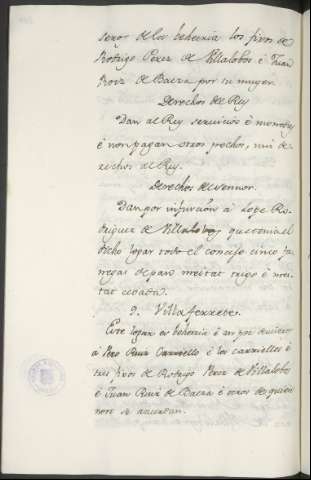 señor de la beheeria los fijos de
Rodrigo Perez de Villalobos é Juan
Roiz de Baeza por su muger.
Derechos del Rey
Dan al Rey servicios é monedas
é non pagan otros pechos, nin de
rechos al Rey.
Derechos del sennor.
Dan por infurcion á Lope Ro-
driguez de Villalobos que tenia el
dicho logar todo el concejo cinco fa
negas de pan meitat trigo é mei-
tat cebada.
9. Villaferrete.
Este logar es beheeria é
á Pero Ruiz Carriello é los carriellos é
tres fijos de Rodrigo Perez de Villalobos
é Juan Ruiz de Baeza é otros de quien
non se acuerdan.